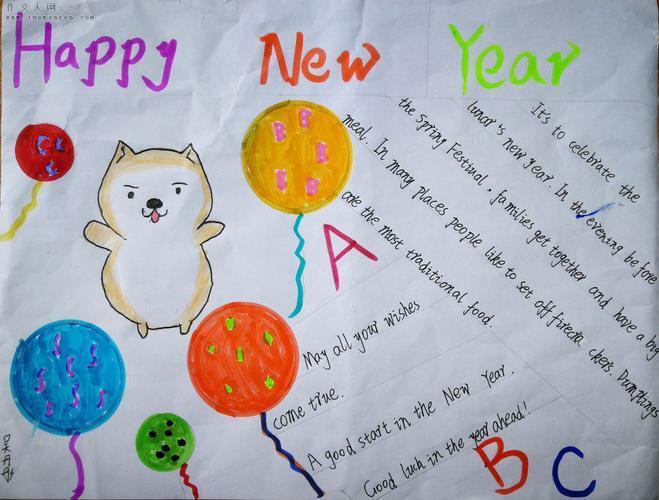 作文人网
Happy New Year
It's to celebrate the
lunar's new year. In the evening before
the Spring Festival , families get together and have a big
meal. In many places people like to set off firecra ckers. Dumplings
are the most traditional food.
A
May all your wishes
come true.
A good start in the New Year.
Good luck in the year ahead!
B C